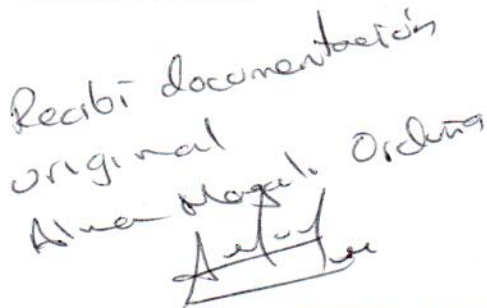 Recibí documentación
original
Alma Magali Orduña